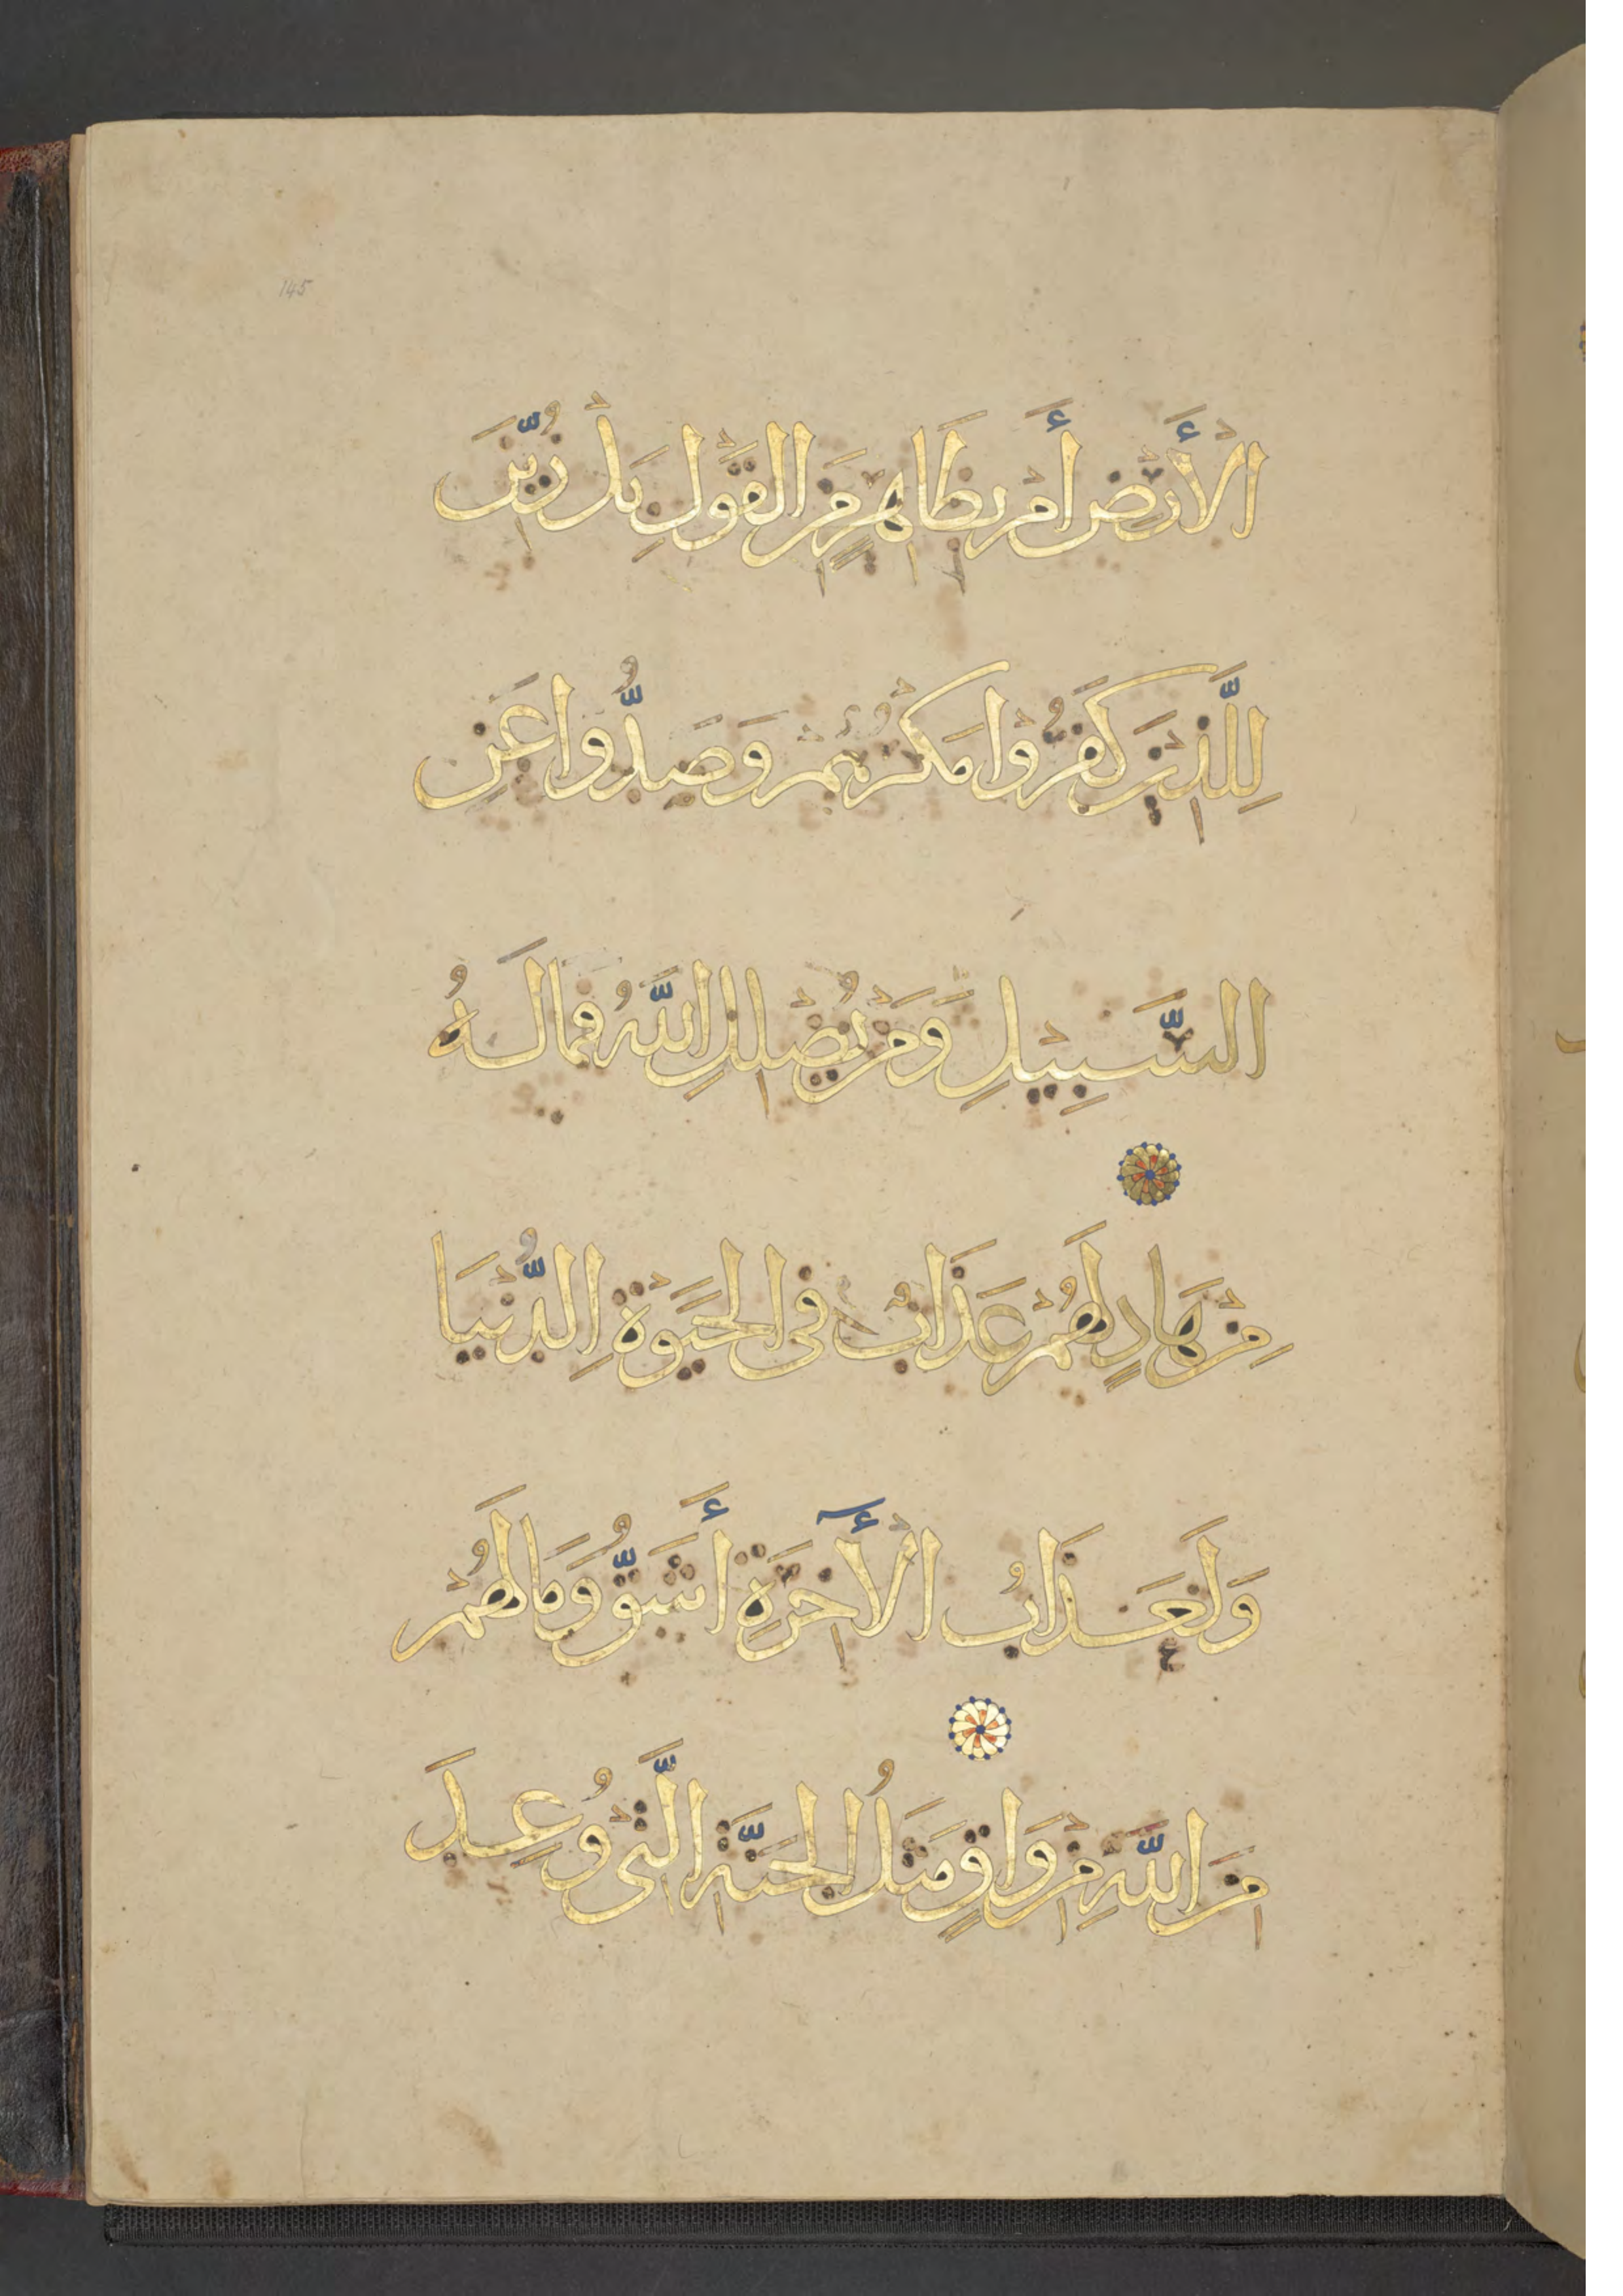 145
الْأَرْضِ أَمْ بِظَاهِرٍ مِنَ الْقَوْلِ بَلْ زُيِّنَ
لِلَّذِيْنَ كَفَرُوْا مَكْرُهُمْ وَصَدُّوا عَنِ
السَّبِيْلِ وَمَنْ يُضْلِلِ اللَّهُ فَمَا لَهُ
مِنْ هَادٍ لَهُمْ عَذَابٌ فِى الْحَيَوةِ الدُّنْيَا
وَلَعَذَابُ الْآخِرَةِ أَشَقُّ وَمَا لَهُمْ
مِنَ اللَّهِ مِنْ وَاقٍ مَثَلُ الْجَنَّةِ الَّتِى وُعِدَ